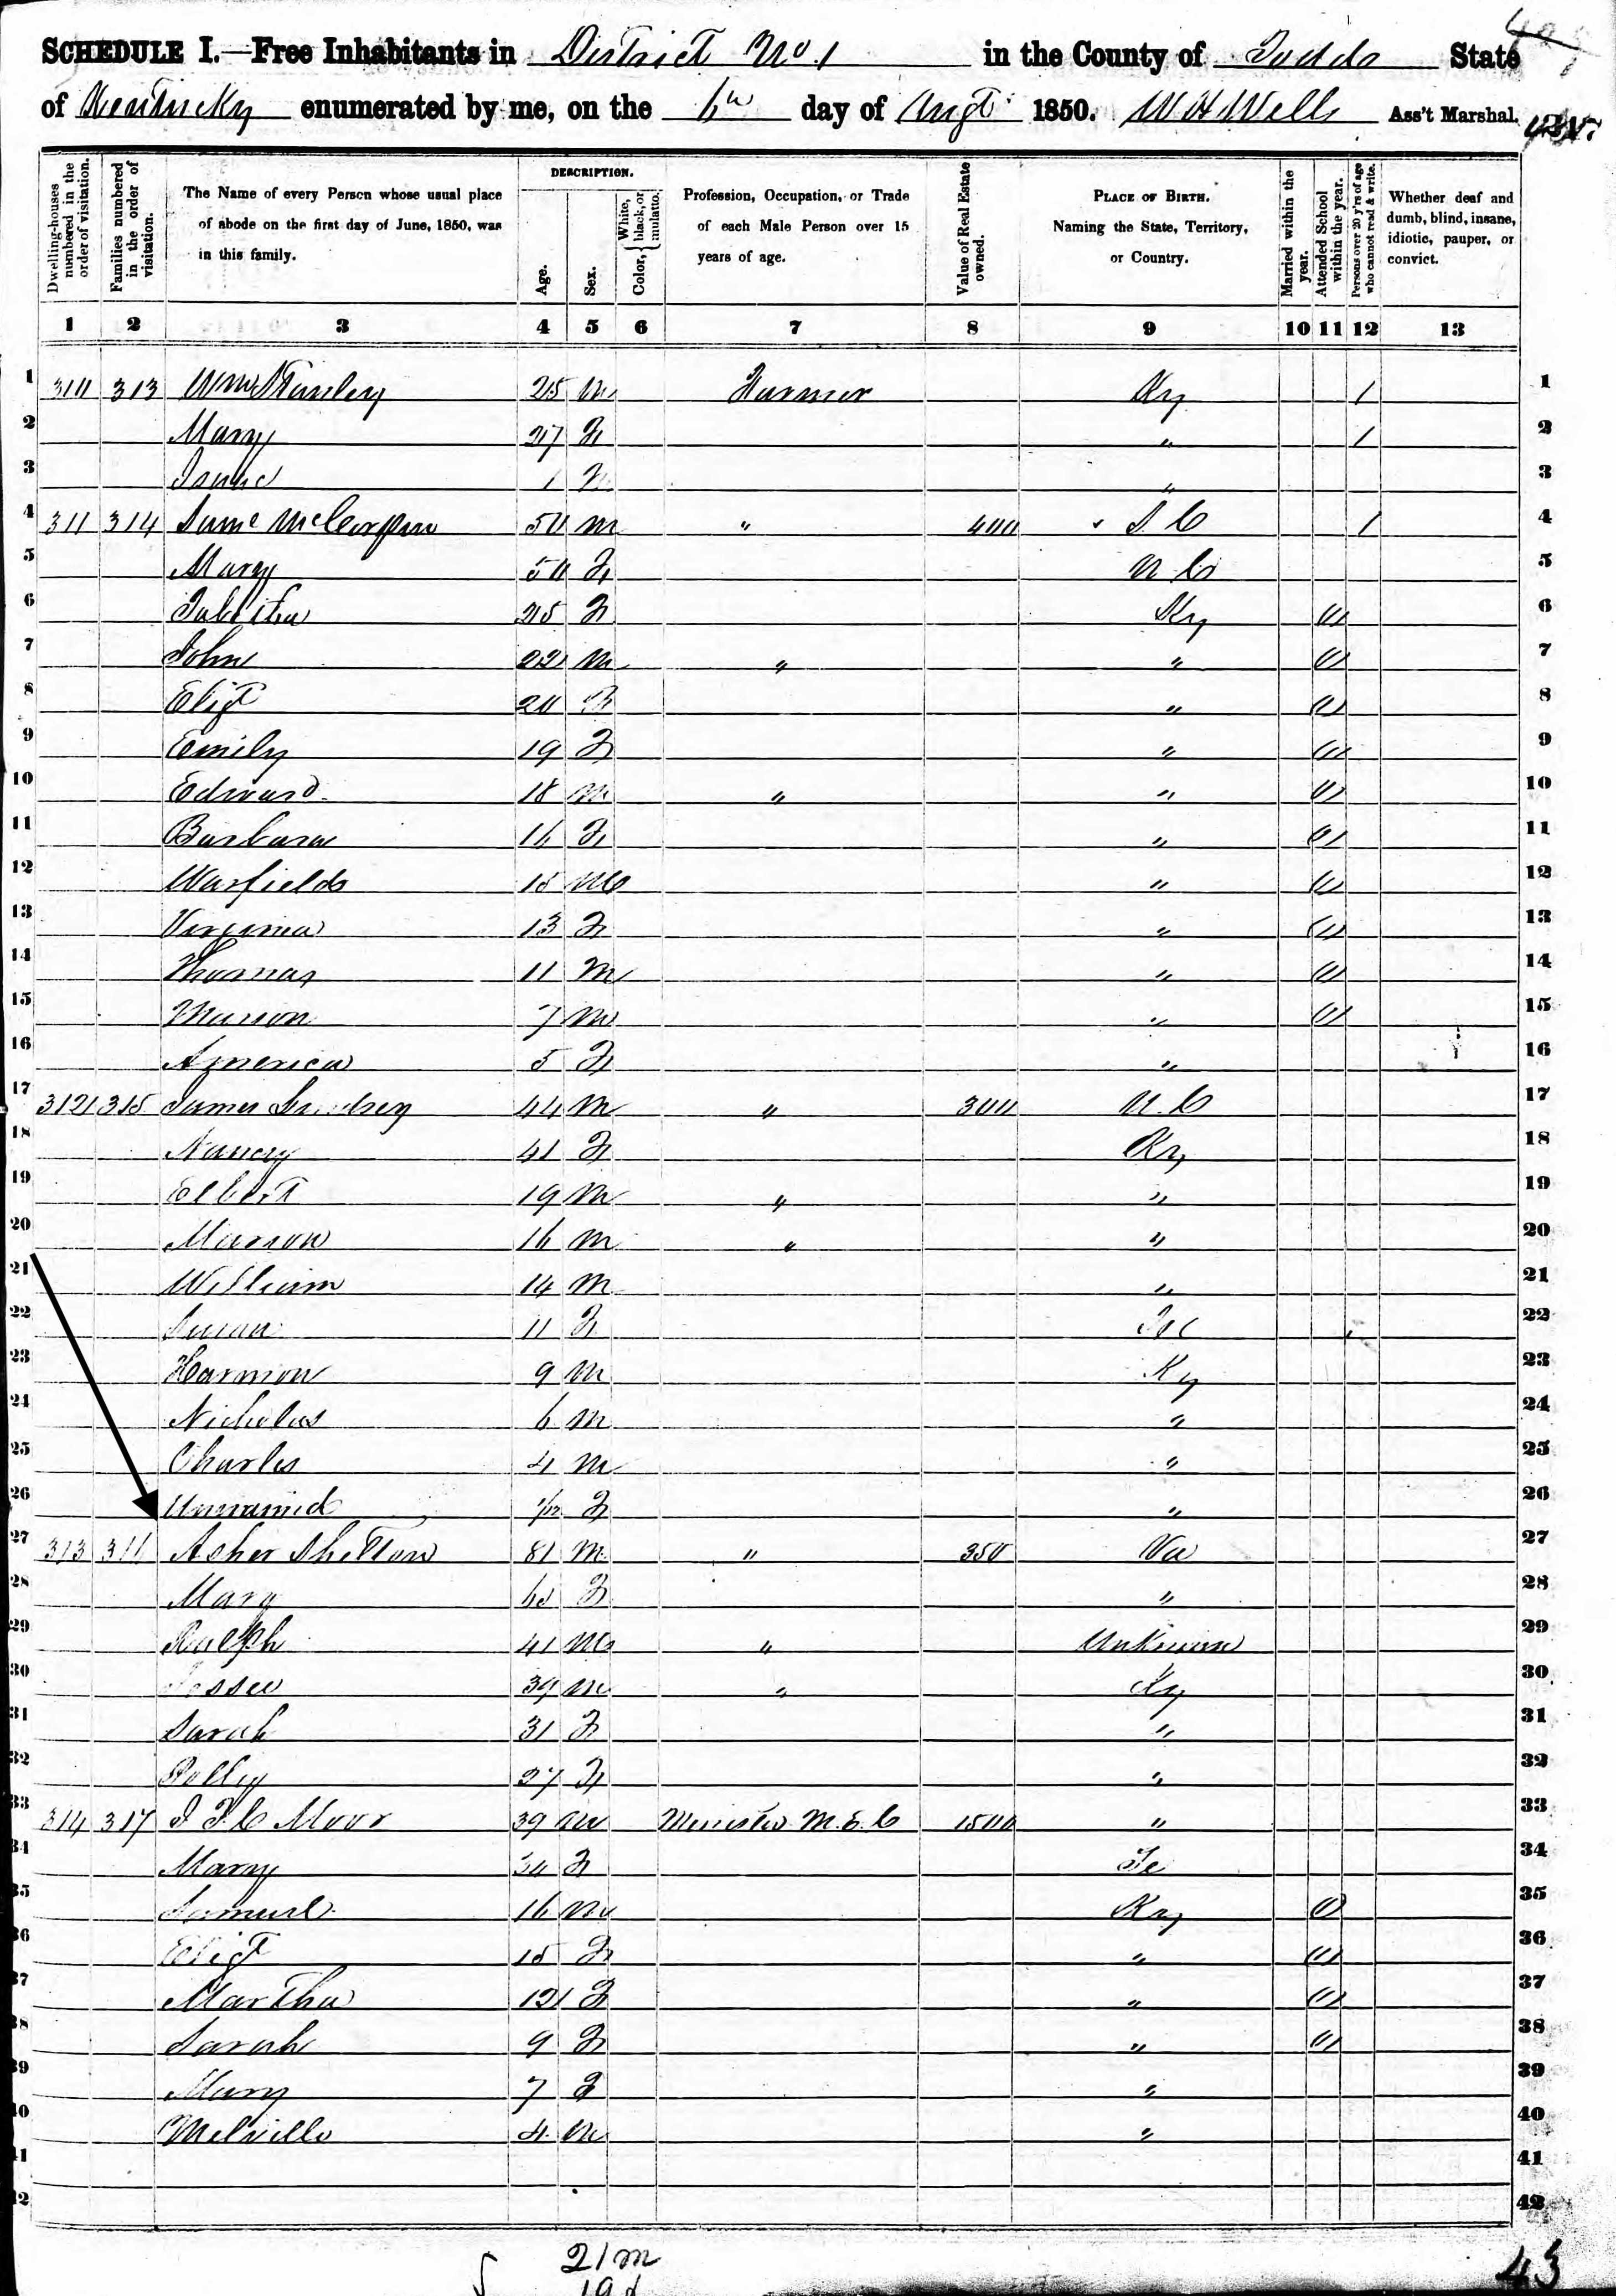 SCHEDULE I.—Free Inhabitants in District No 1 in the County of Todd State
of Kentucky enumerated by me, on the 6th day of Augt 1850. W H Wells Ass't Marshal.
Dwelling-houses numbered in the order of visitation.
Families numbered in the order of visitation.
The Name of every Person whose usual place of abode on the first day of June, 1850, was in this family.
DESCRIPTION.
Age.
Sex.
Color, { White, black, or mulatto.
Profession, Occupation, or Trade of each Male Person over 15 years of age.
Value of Real Estate owned.
PLACE OF BIRTH. Naming the State, Territory, or Country.
Married within the year.
Attended School within the year.
Persons over 20 y'rs of age who cannot read & write.
Whether deaf and dumb, blind, insane, idiotic, pauper, or convict.
1 2 3 4 5 6 7 8 9 10 11 12 13
1 310 313 Wm Stanley 25 m Farmer Ky / 1
2 Mary 27 F " / 2
3 1 " 3
4 311 314 50 m " 400 S C / 4
5 Mary 50 F N C 5
6 Tabitha 25 F Ky 6
7 John 22 m " " 7
8 Eliz 20 F " 8
9 Emily 19 F " 9
10 Edward 18 m " " 10
11 Barbara 16 F " 11
12 Warfield 15 m " 12
13 Virginia 13 F " 13
14 Thomas 11 m " 14
15 Marion 7 m " 15
16 America 5 F " 16
17 312 315 James Lindsey 44 m " 300 N. C 17
18 Nancy 41 F Ky 18
19 Elbert 19 m " " 19
20 Marion 16 m " " 20
21 William 14 m " 21
22 Susan 11 F 22
23 Harmon 9 m Ky 23
24 Nicholas 6 m " 24
25 Charles 4 m " 25
26 Unnamed 1/12 F " 26
27 313 316 Asher Shelton 81 m " 350 Va 27
28 Mary F " 28
29 Ralph 41 m " Unknown 29
30 Jessee 39 m " Ky 30
31 Sarah 31 F " 31
32 Polly 27 F " 32
33 314 317 Moor 39 m Minister M. E. C 1500 " 33
34 Mary 30 F Te 34
35 Samuel 16 m Ky 35
36 Eliz 15 F " 36
37 Martha 12 F " 37
38 Sarah 9 F " 38
39 Mary 7 F " 39
40 Melville 4 m " 40
41 41
42 42
21 m
19 f
43